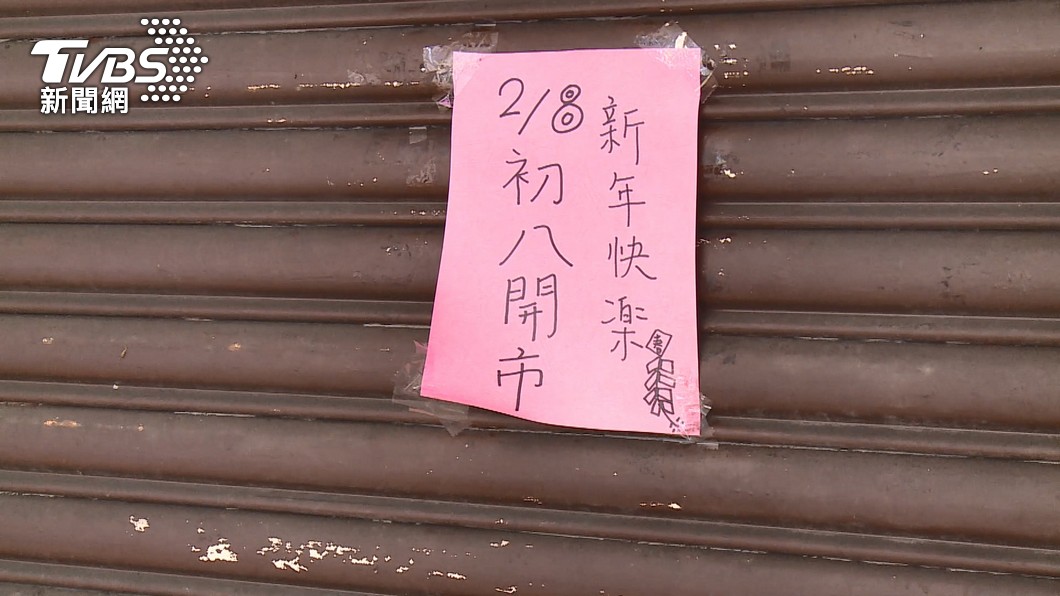 TVBS
新聞網
新年快楽
2/8初八開市
春